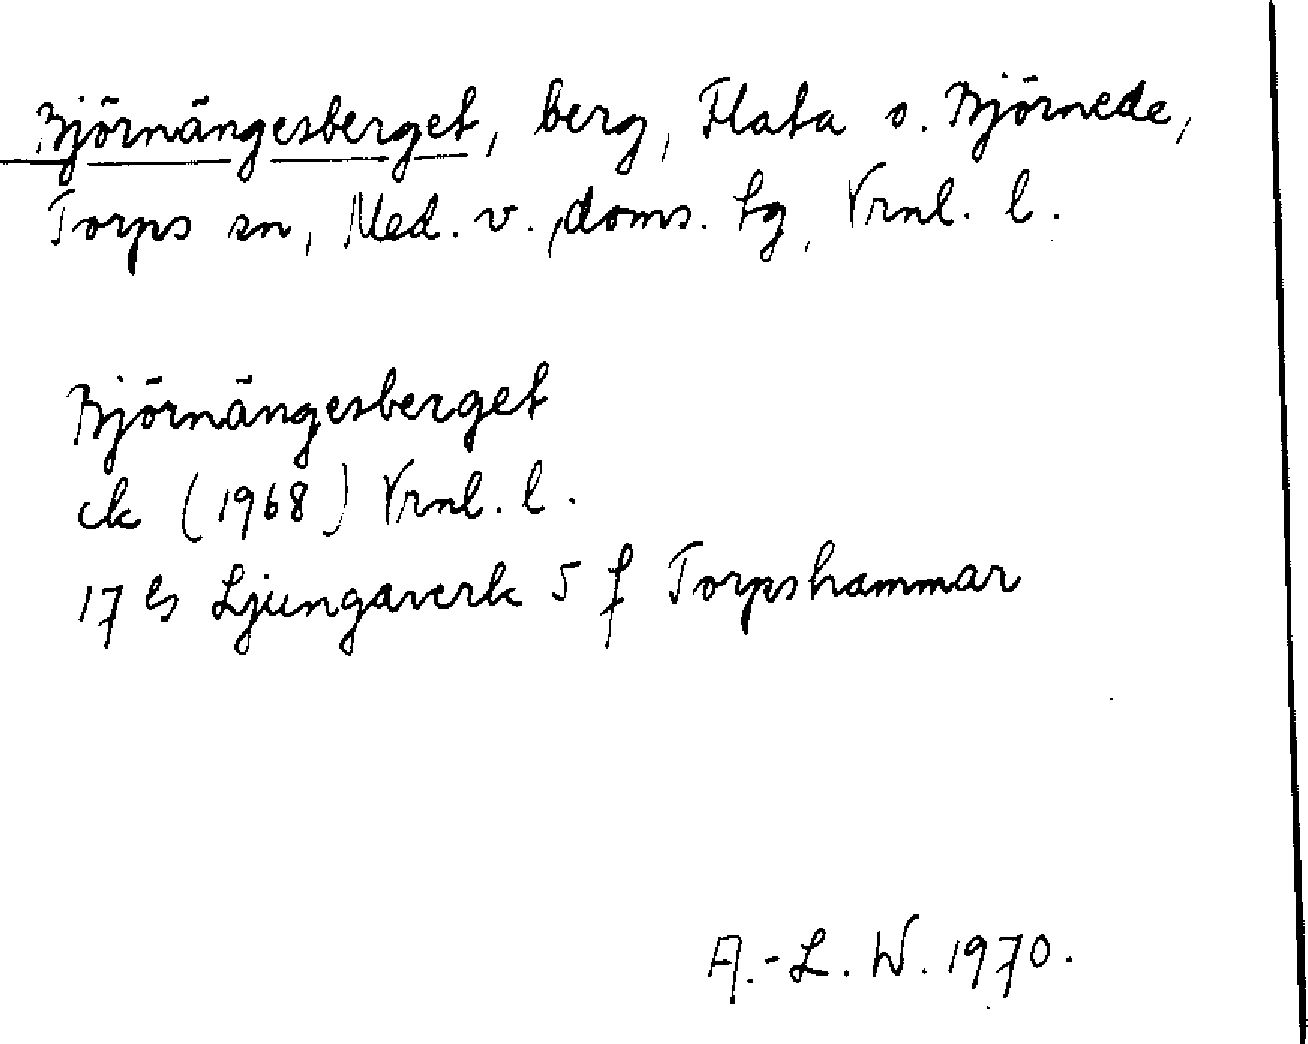 Björnängesberget, berg, Flata o. Björnede,
Torps sn, Med. v. doms. tg, Vrnl. l.
Björnängesberget
ek (1968) Vrnl. l.
17 Es Ljungaverk 5 f Torpshammar
A.-L. W. 1970.